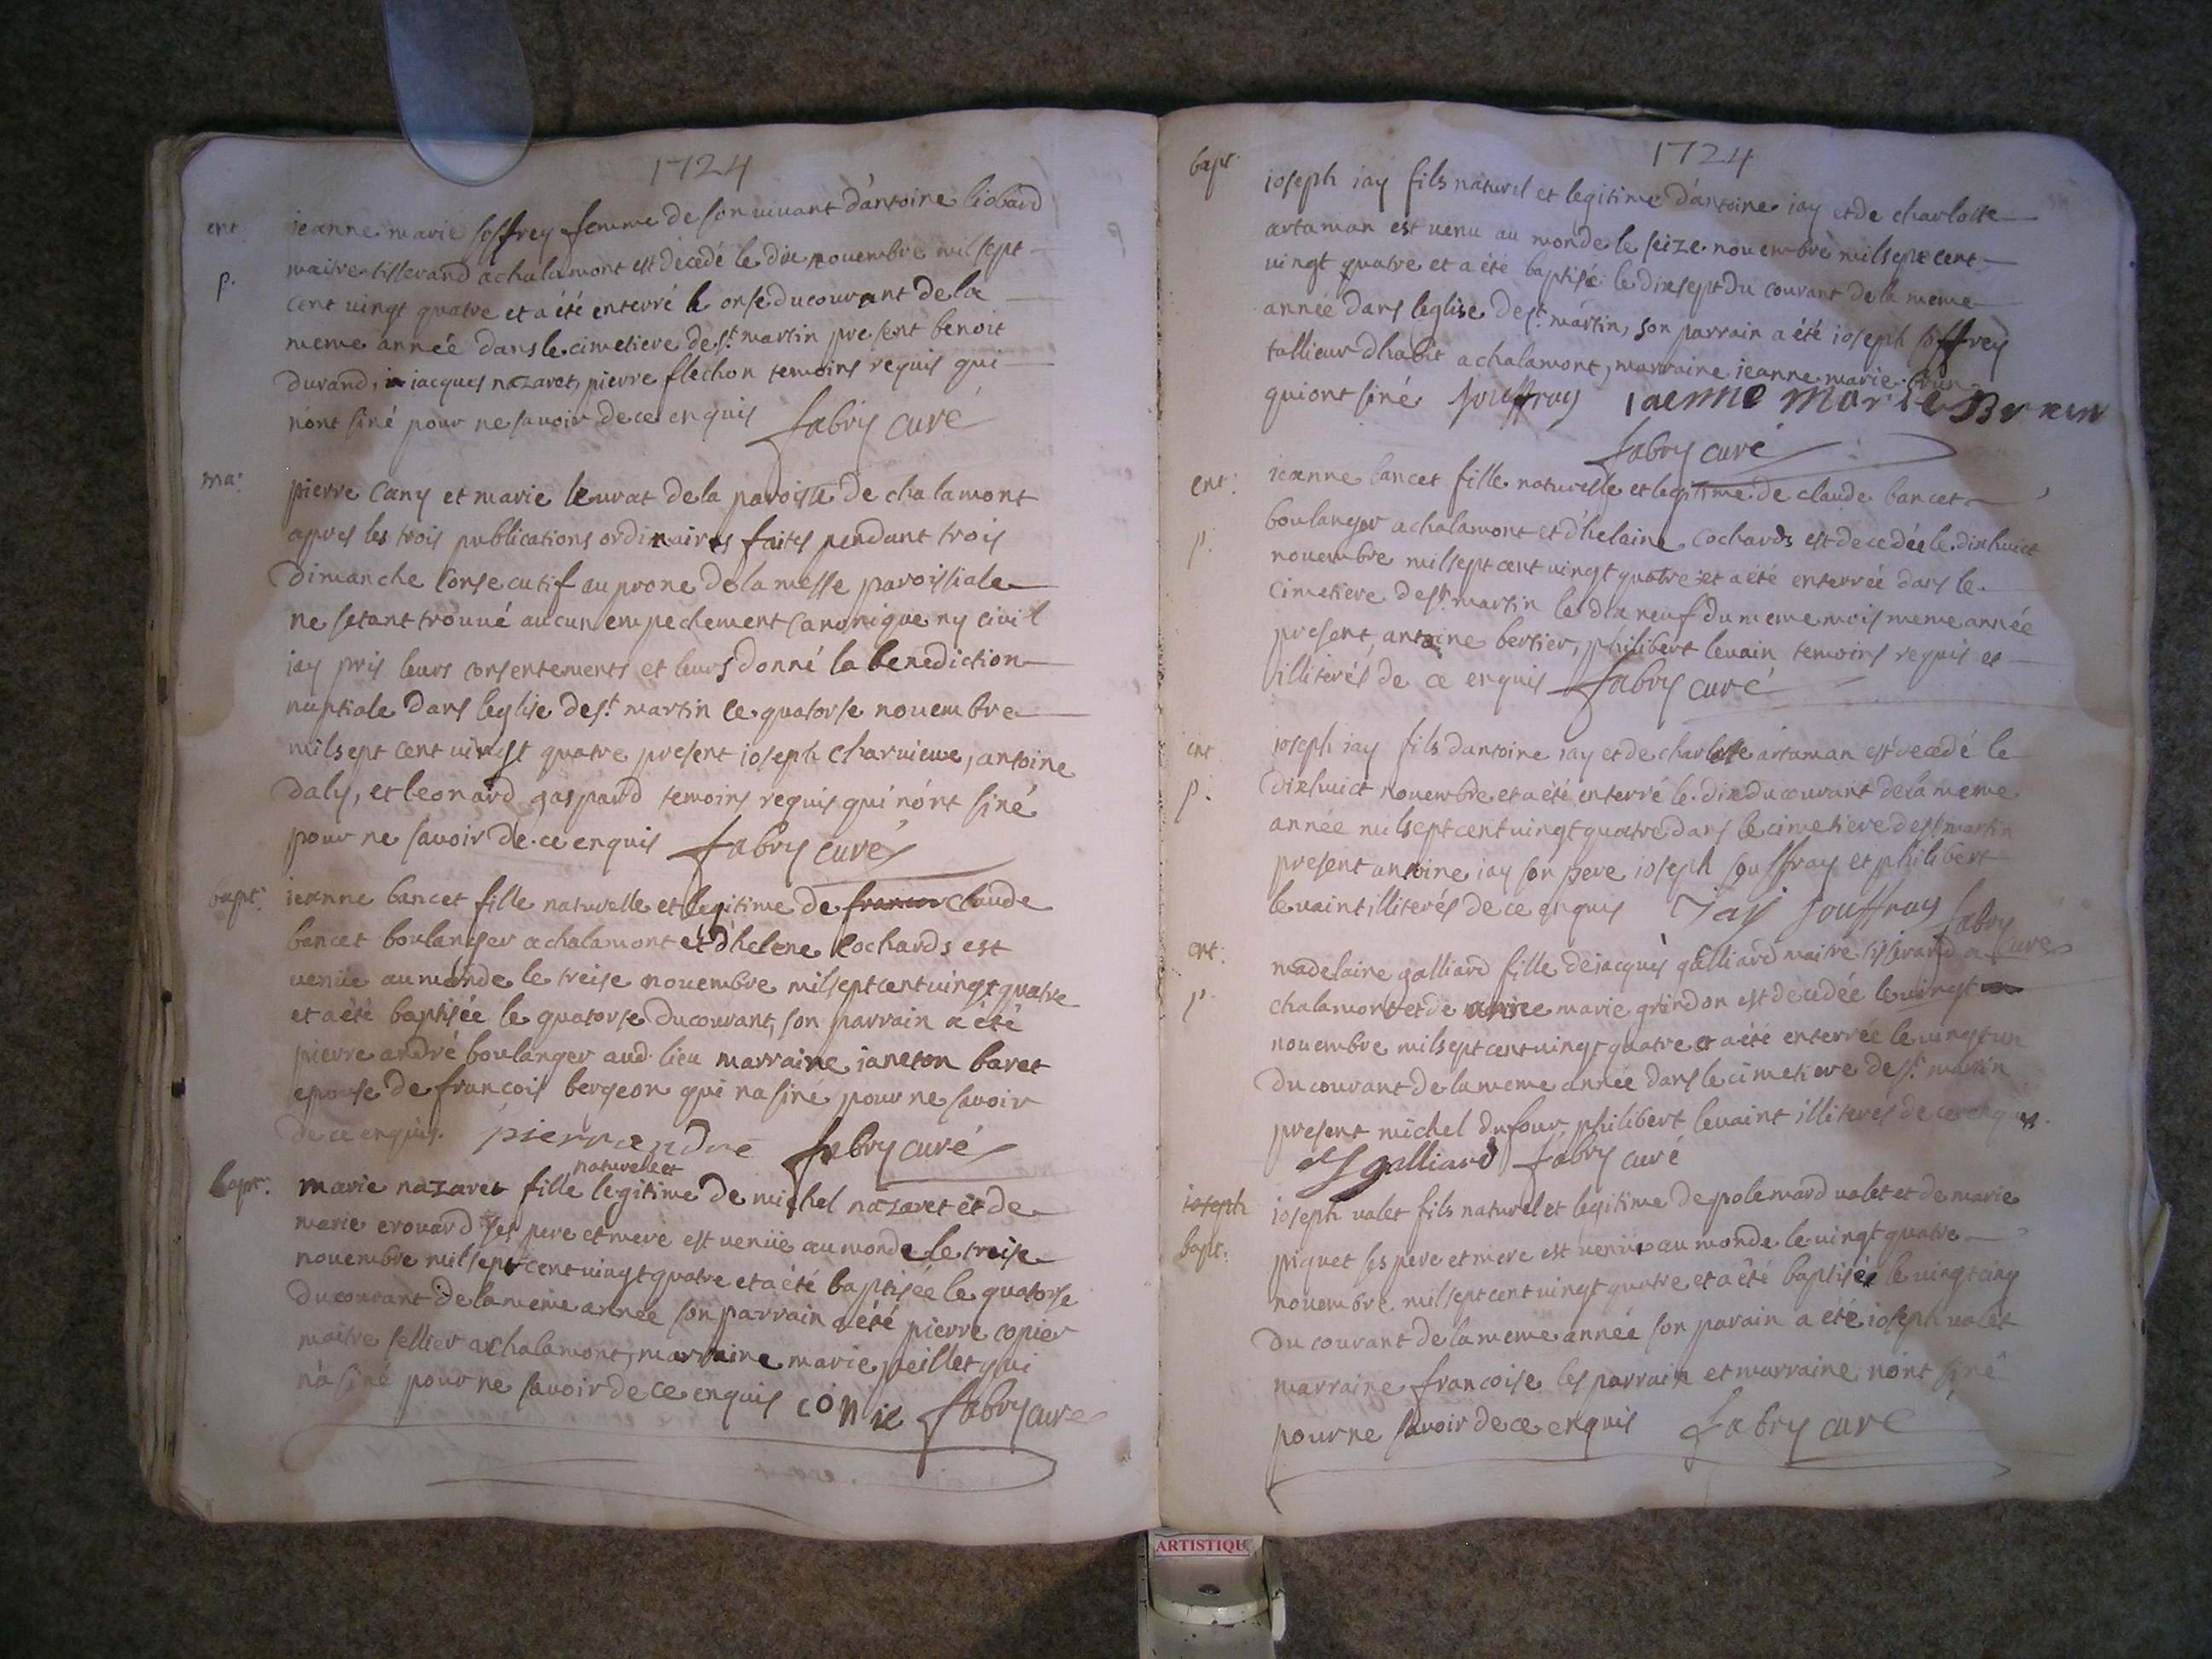 1724
ent
p.
jeanne marie soffrey femme de son vivant d'antoine liobard
maitre tisserand a chalamont est décedé le dix novembre mil sept
cent vingt quatre et a été enterré le onse du courant de la
meme année dans le cimetiere de st. martin present benoit
durand, jacques nazaret, pierre flechon temoins requis qui
n'ont siné pour ne savoir de ce enquis fabry curé
mar.
pierre Cany et marie leurat de la paroisse de chalamont
apres les trois publications ordinaires faites pendant trois
dimanche consecutif au prone de la messe paroissiale
ne setant trouvé aucun empechement canonique ny civil
jay pris leurs consentements et leurs donné la benediction
nuptiale dans leglise de st. martin le quatorse novembre
mil sept cent vingt quatre present joseph charvieux, antoine
daly, et leonard gaspard temoins requis qui n'ont siné
pour ne savoir de ce enquis fabry curé
bapt.
jeanne bancet fille naturelle et legitime de francois claude
bancet boulanger a chalamont et d'helene cochards est
venüe au monde le treise novembre mil sept cent vingt quatre
et a été baptisée le quatorse du courant, son parrain a été
pierre andré boulanger aud. lieu marraine janeton baret
epouse de francois bergeon qui na siné pour ne savoir
de ce enquis. pierre andre fabry curé
bapt.
naturelle et
marie nazaret fille legitime de michel nazaret et de
marie erouard ses pere et mere est venüe au monde le treise
novembre mil sept cent vingt quatre et a été baptisée le quatorse
du courant de la meme année son parrain a été pierre copier
maitre sellier a chalamont, marraine marie peillet qui
n'a siné pour ne savoir de ce enquis fabry curé
1724
bapt.
joseph jay fils naturel et legitime d'antoine jay et de charlotte
artaman est venu au monde le seize novembre mil sept cent
vingt quatre et a été baptisé le dix sept du courant de la meme
année dans leglise de st. martin, son parrain a été joseph soffrey
tallieur dhabit a chalamont, marraine jeanne marie brun
qui ont siné souffray jaenne marie Brun
fabry curé
ent.
p.
jeanne bancet fille naturelle et legitime de claude bancet
boulanger a chalamont et d'helaine cochards est decedée le dix huict
novembre mil sept cent vingt quatre et a été enterrée dans le
cimetiere de st. martin le dix neuf du meme mois meme année
present, antoine bertier, philibert levain temoins requis et
illiterés de ce enquis fabry curé
ent
p.
joseph jay fils dantoine jay et de charlotte artaman est decedé le
dix huict novembre et a été enterré le dix du courant de la meme
année mil sept cent vingt quatre dans le cimetiere de st martin
present antoine jay son pere joseph souffray et philibert
levaint illiterés de ce enquis Jay souffray fabry
curé
ent.
p.
madelaine galliard fille de jacques galliard maitre tisserand a
chalamont et de marie grindon est decedée le vingt
novembre mil sept cent vingt quatre et a été enterrée le vingt un
du courant de la meme année dans le cimetiere de st. martin
present michel dufour, philibert levaint illiterés de ce enquis.
galliard fabry curé
joseph
bapt.
joseph valet fils naturel et legitime de polemard valet et de marie
piquet ses pere et mere est venüe au monde le vingt quatre
novembre mil sept cent vingt quatre et a été baptisée le vingt cinq
du courant de la meme année son parain a été joseph valet
marraine francoise les parrain et marraine n'ont siné
pour ne savoir de ce enquis fabry curé
ARTISTIQU